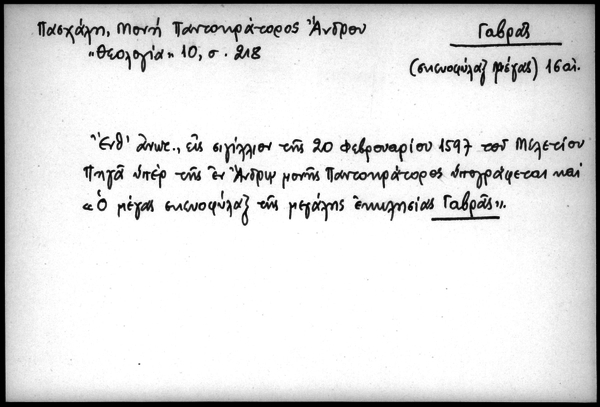 Πασχάλη, Μονή Παντοκράτορος Ἄνδρου
Γαβρᾶς
"Θεολογία" 10, σ. 218
(σκευοφύλαξ μέγας) 16 αἰ.
Ἔνθ' ἀνωτ., εἰς σιγίλλιον τῆς 20 Φεβρουαρίου 1597 τοῦ Μελετίου
Πηγᾶ ὑπὲρ τῆς ἐν Ἄνδρῳ μονῆς Παντοκράτορος ὑπογράφεται καὶ
«Ὁ μέγας σκευοφύλαξ τῆς μεγάλης ἐκκλησίας Γαβρᾶς».